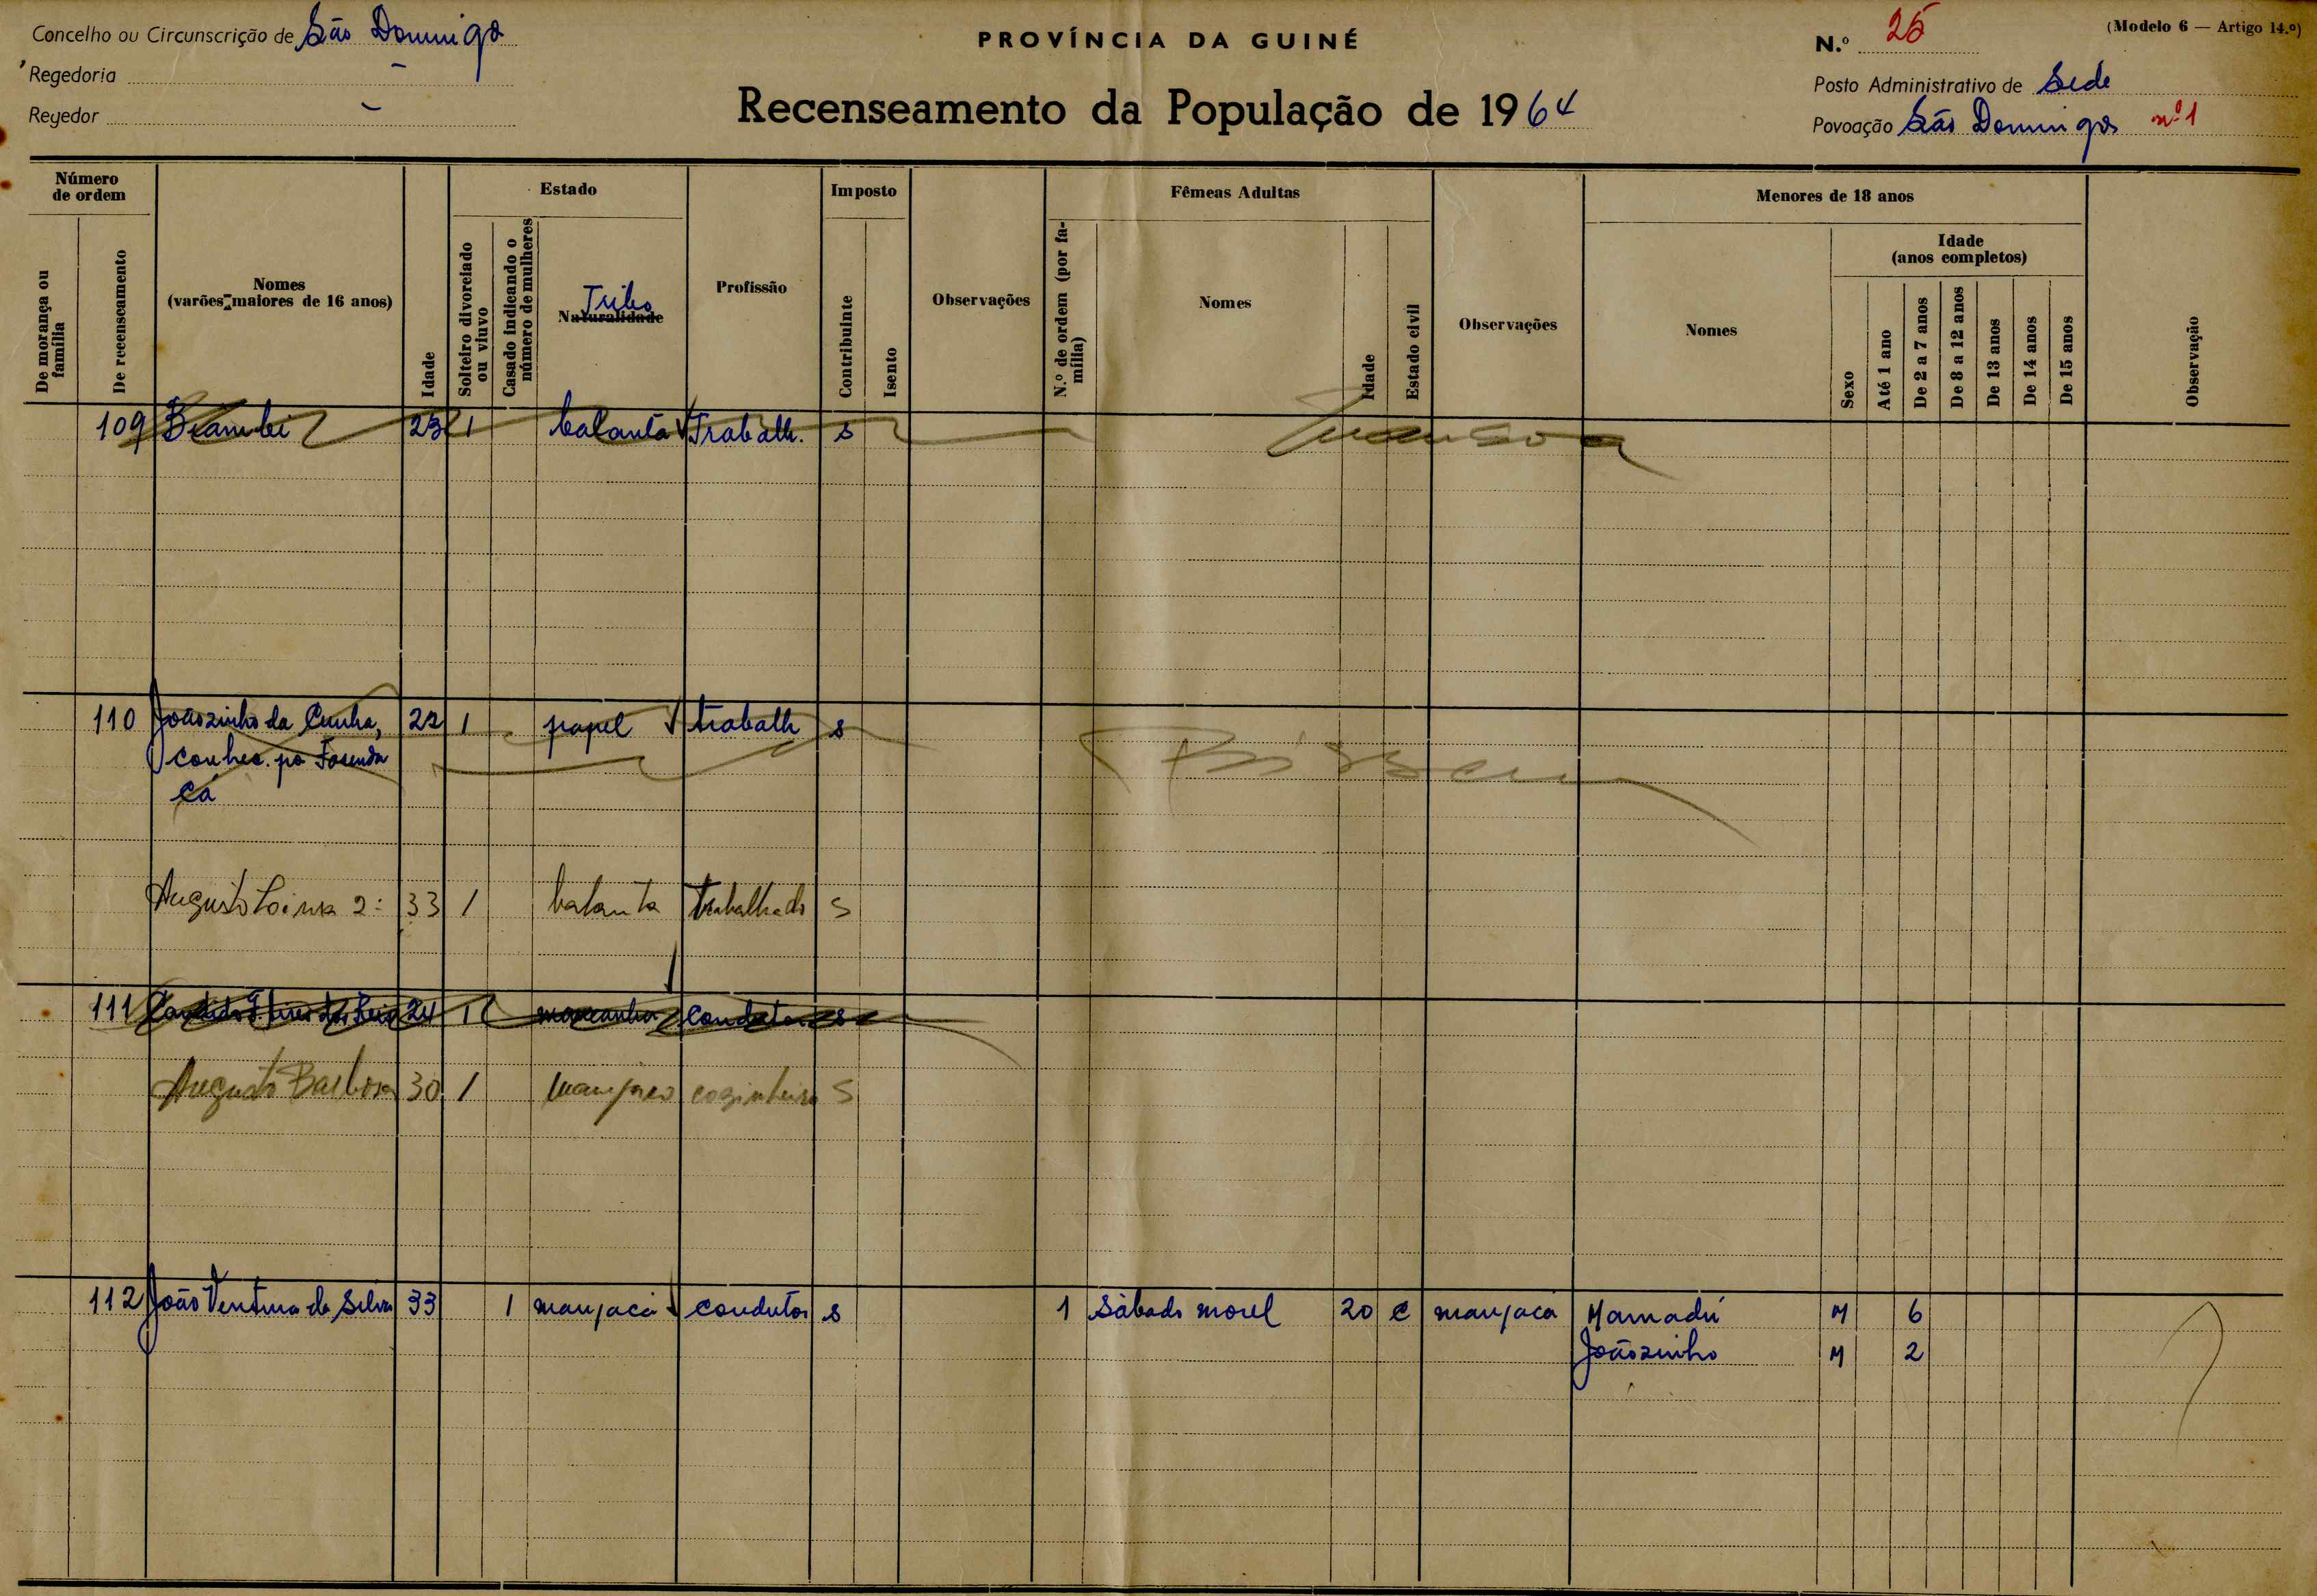 Concelho ou Circunscrição de São Domingos
Regedoria -
Regedor -
PROVÍNCIA DA GUINÉ
Recenseamento da População de 1964
(Modelo 6 — Artigo 14.º)
N.º 25
Posto Administrativo de Sede
Povoação São Domingos nº 1
Número de ordem
De morança ou família
De recenseamento
Nomes
(varões maiores de 16 anos)
Idade
Estado
Solteiro divorciado ou viuvo
Casado indicando o número de mulheres
Tribo
Naturalidade
Profissão
Imposto
Contribuinte
Isento
Observações
Fêmeas Adultas
N.º de ordem (por família)
Nomes
Idade
Estado civil
Observações
Menores de 18 anos
Nomes
Idade
(anos completos)
Sexo
Até 1 ano
De 2 a 7 anos
De 8 a 12 anos
De 13 anos
De 14 anos
De 15 anos
Observação
109 Biambi 23 1 balanta Trabalh. s
110 Joãozinho da Cunha, 22 1 papel trabalh s
conhec. por Fasenda
Cá
Bissau
Augusto 2º 33 1 balanta trabalhado s
111 24 1 mancanha condutor s
Augusto Barbosa 30 1 manjaco cozinheiro s
112 João Ventura da Silva 33 1 manjaca condutor s 1 Sábado morel 20 c manjaca Mamadú M 6
Joãozinho M 2